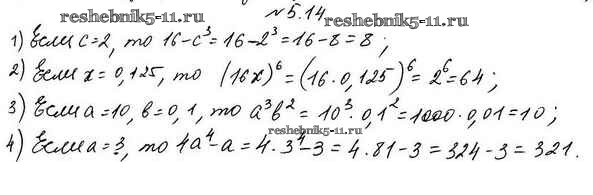 reshebnik5-11.ru
№5.14
reshebnik5-11.ru
1) Если c=2, то 16-c³=16-2³=16-8=8;
2) Если x=0,125, то (16x)⁶=(16·0,125)⁶=2⁶=64;
3) Если a=10, b=0,1, то a³b²=10³·0,1²=1000·0,01=10;
reshebnik5-11.ru
4) Если a=3, то 4a⁴-a=4·3⁴-3=4·81-3=324-3=321.